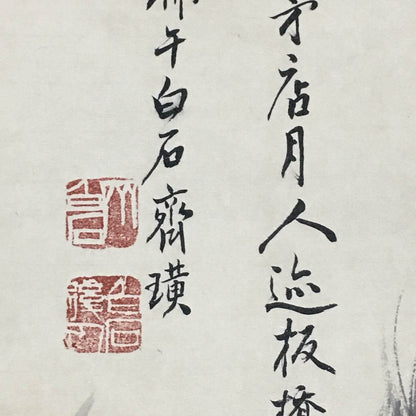 茅店月人迹板橋
午白石齊璜